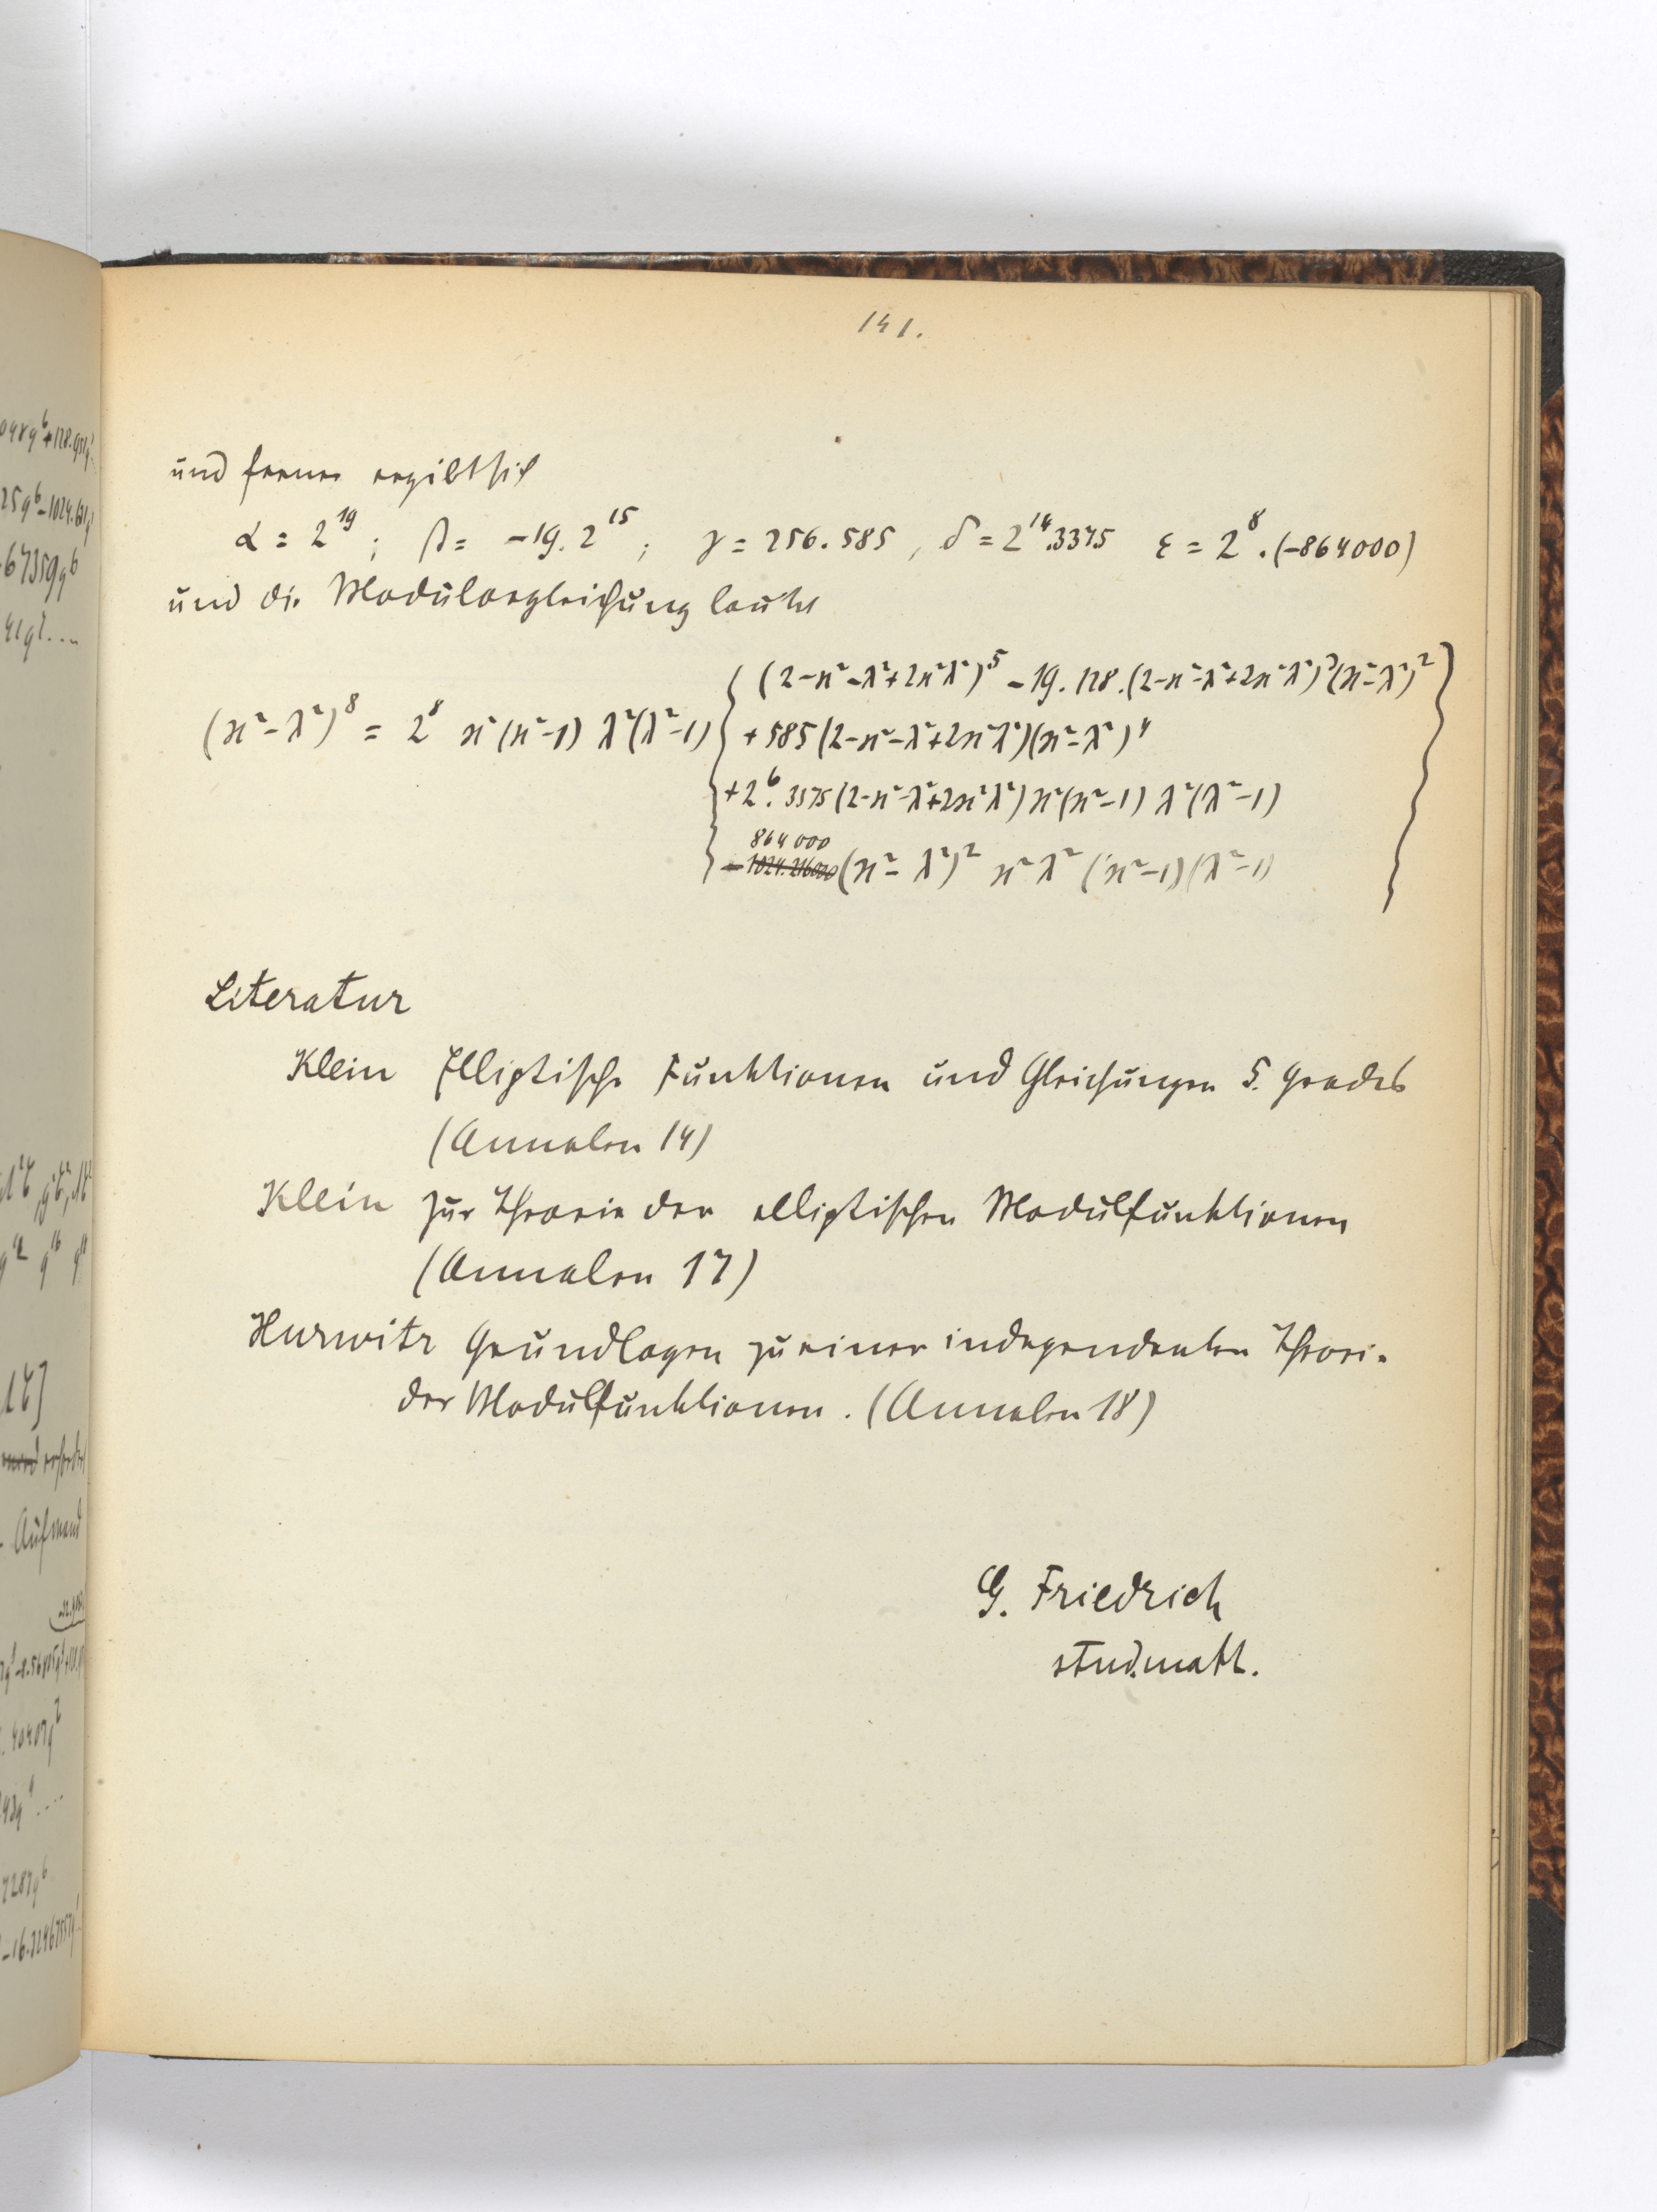 141.
und ferner ergibt sich
α = 2^19 ; β = -19. 2^15 ; γ = 256. 585 , δ = 2^14.3375 ε = 2^8 . (-864000)
und die Modulargleichung lautet
(ϰ² - λ²)^8 = 2^8 ϰ²(ϰ²-1) λ²(λ²-1) { (2-ϰ²-λ²+2ϰ²λ²)^5 - 19. 128.(2-ϰ²-λ²+2ϰ²λ²)^3(ϰ²-λ²)^2 }
+ 585 (2-ϰ²-λ²+2ϰ²λ²)(ϰ²-λ²)^4
+2^6. 3375 (2-ϰ²-λ²+2ϰ²λ²) ϰ²(ϰ²-1) λ²(λ²-1)
864 000
- 1024. 216000 (ϰ² - λ²)^2 ϰ² λ² (ϰ²-1)(λ²-1)
Literatur
Klein Elliptische Funktionen und Gleichungen 5. Grades
(Annalen 14)
Klein zur Theorie der elliptischen Modulfunktionen
(Annalen 17)
Hurwitz Grundlagen zu einer independenten Theorie
der Modulfunktionen. (Annalen 18)
G. Friedrich
stud. math.